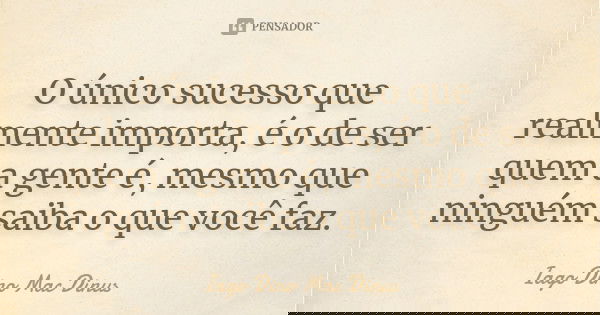 PENSADOR
O único sucesso que
realmente importa, é o de ser
quem a gente é, mesmo que
ninguém saiba o que você faz.
Iago Dino Mac Dinus